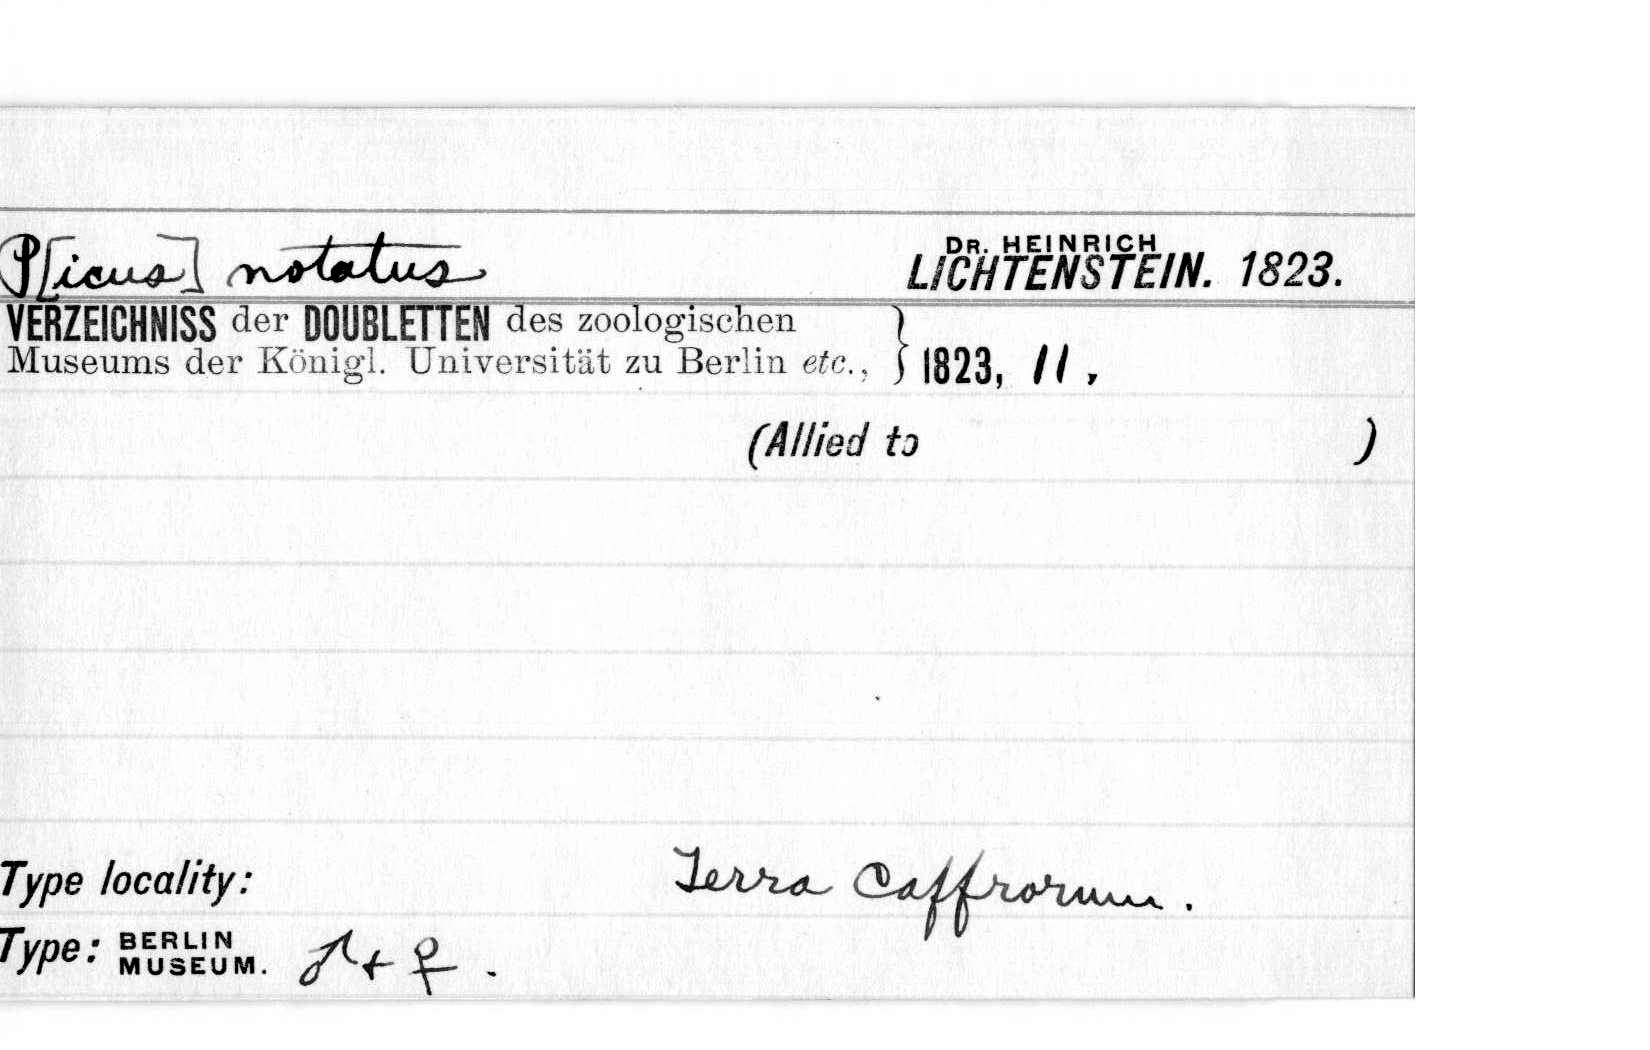 P[icus] notatus
DR. HEINRICH
LICHTENSTEIN. 1823.
VERZEICHNISS der DOUBLETTEN des zoologischen
Museums der Königl. Universität zu Berlin etc., } 1823, 11,
(Allied to )
Type locality: Terra Caffrorum.
Type: BERLIN MUSEUM. ♂ + ♀.